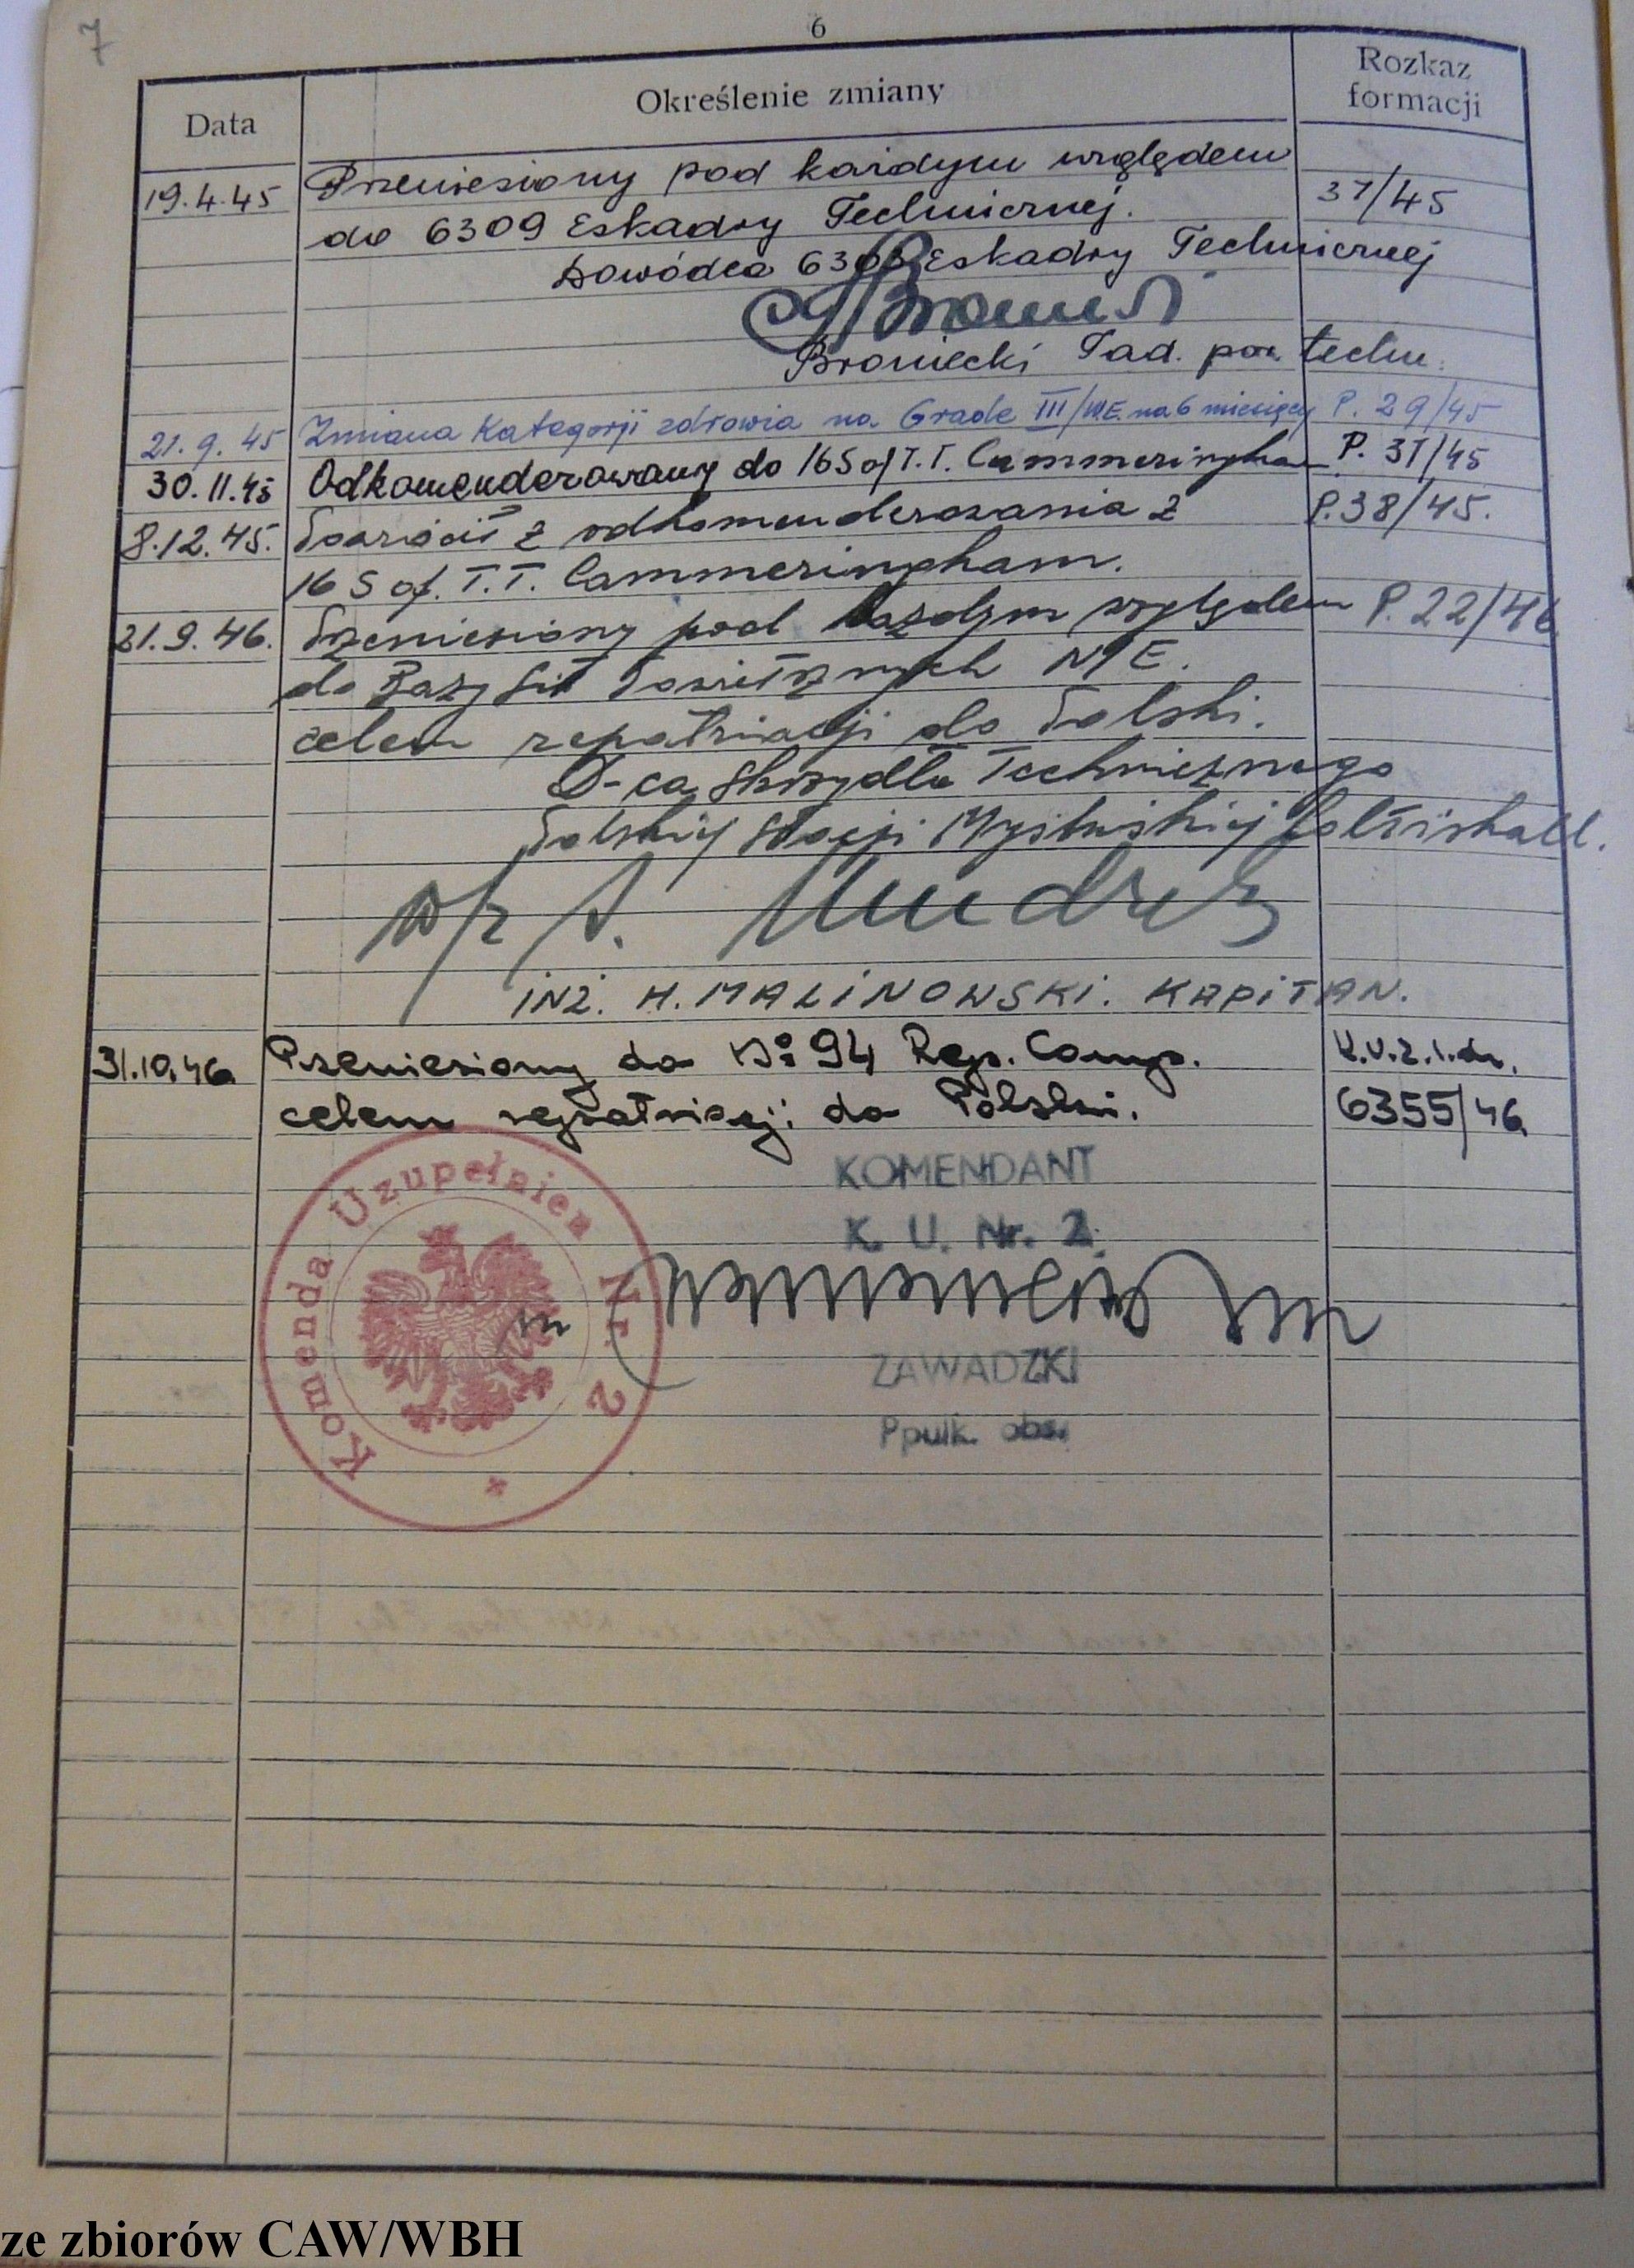 7
6
Data
Określenie zmiany
Rozkaz
formacji
19.4.45 Przeniesiony pod każdym względem
37/45
do 6309 Eskadry Technicznej.
Dowódca 6309 Eskadry Technicznej
Broniecki Tad. por. techn.
21.9.45 Zmiana Kategorji zdrowia na Grade III/W.E. na 6 miesięcy P. 29/45
30.11.45 Odkomenderowany do 16 S of T.T. Cammeringham P. 37/45
8.12.45. Powrócił z odkomenderowania z P.38/45.
16 S of. T.T. Cammeringham.
21.9.46. Przeniesiony pod każdym względem P.22/46
do Bazy Sił Powietrznych N/E.
celem repatriacji do Polski.
D-ca Skrzydła Technicznego
Polskiej Stacji Myśliwskiej Coltishall.
w/z
INŻ. H. MALINOWSKI. KAPITAN.
31.10.46 Przeniesiony do No 94 Rep. Camp.
celem repatriacji do Polski. 6355/46.
Komenda Uzupełnien Nr. 2
KOMENDANT
K. U. Nr. 2.
ZAWADZKI
Ppułk. obs.
ze zbiorów CAW/WBH